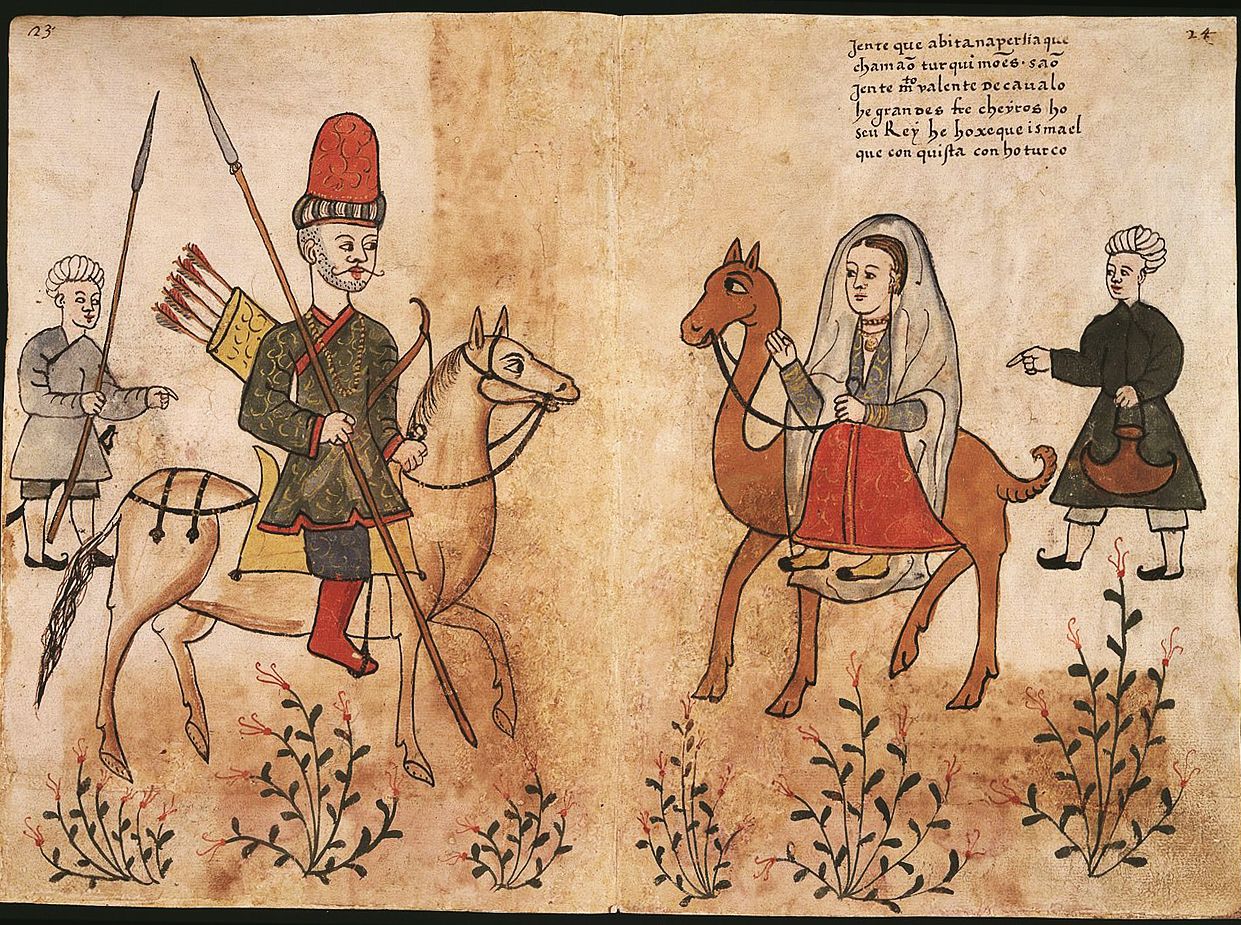 23
24
Jente que abitanapersiaque
chamaõ turquimoẽs. saõ
Jente m̃to valente decaualo
he grandes frecheyros ho
seu Rey he hoxeque ismael
que conquista com hoturco